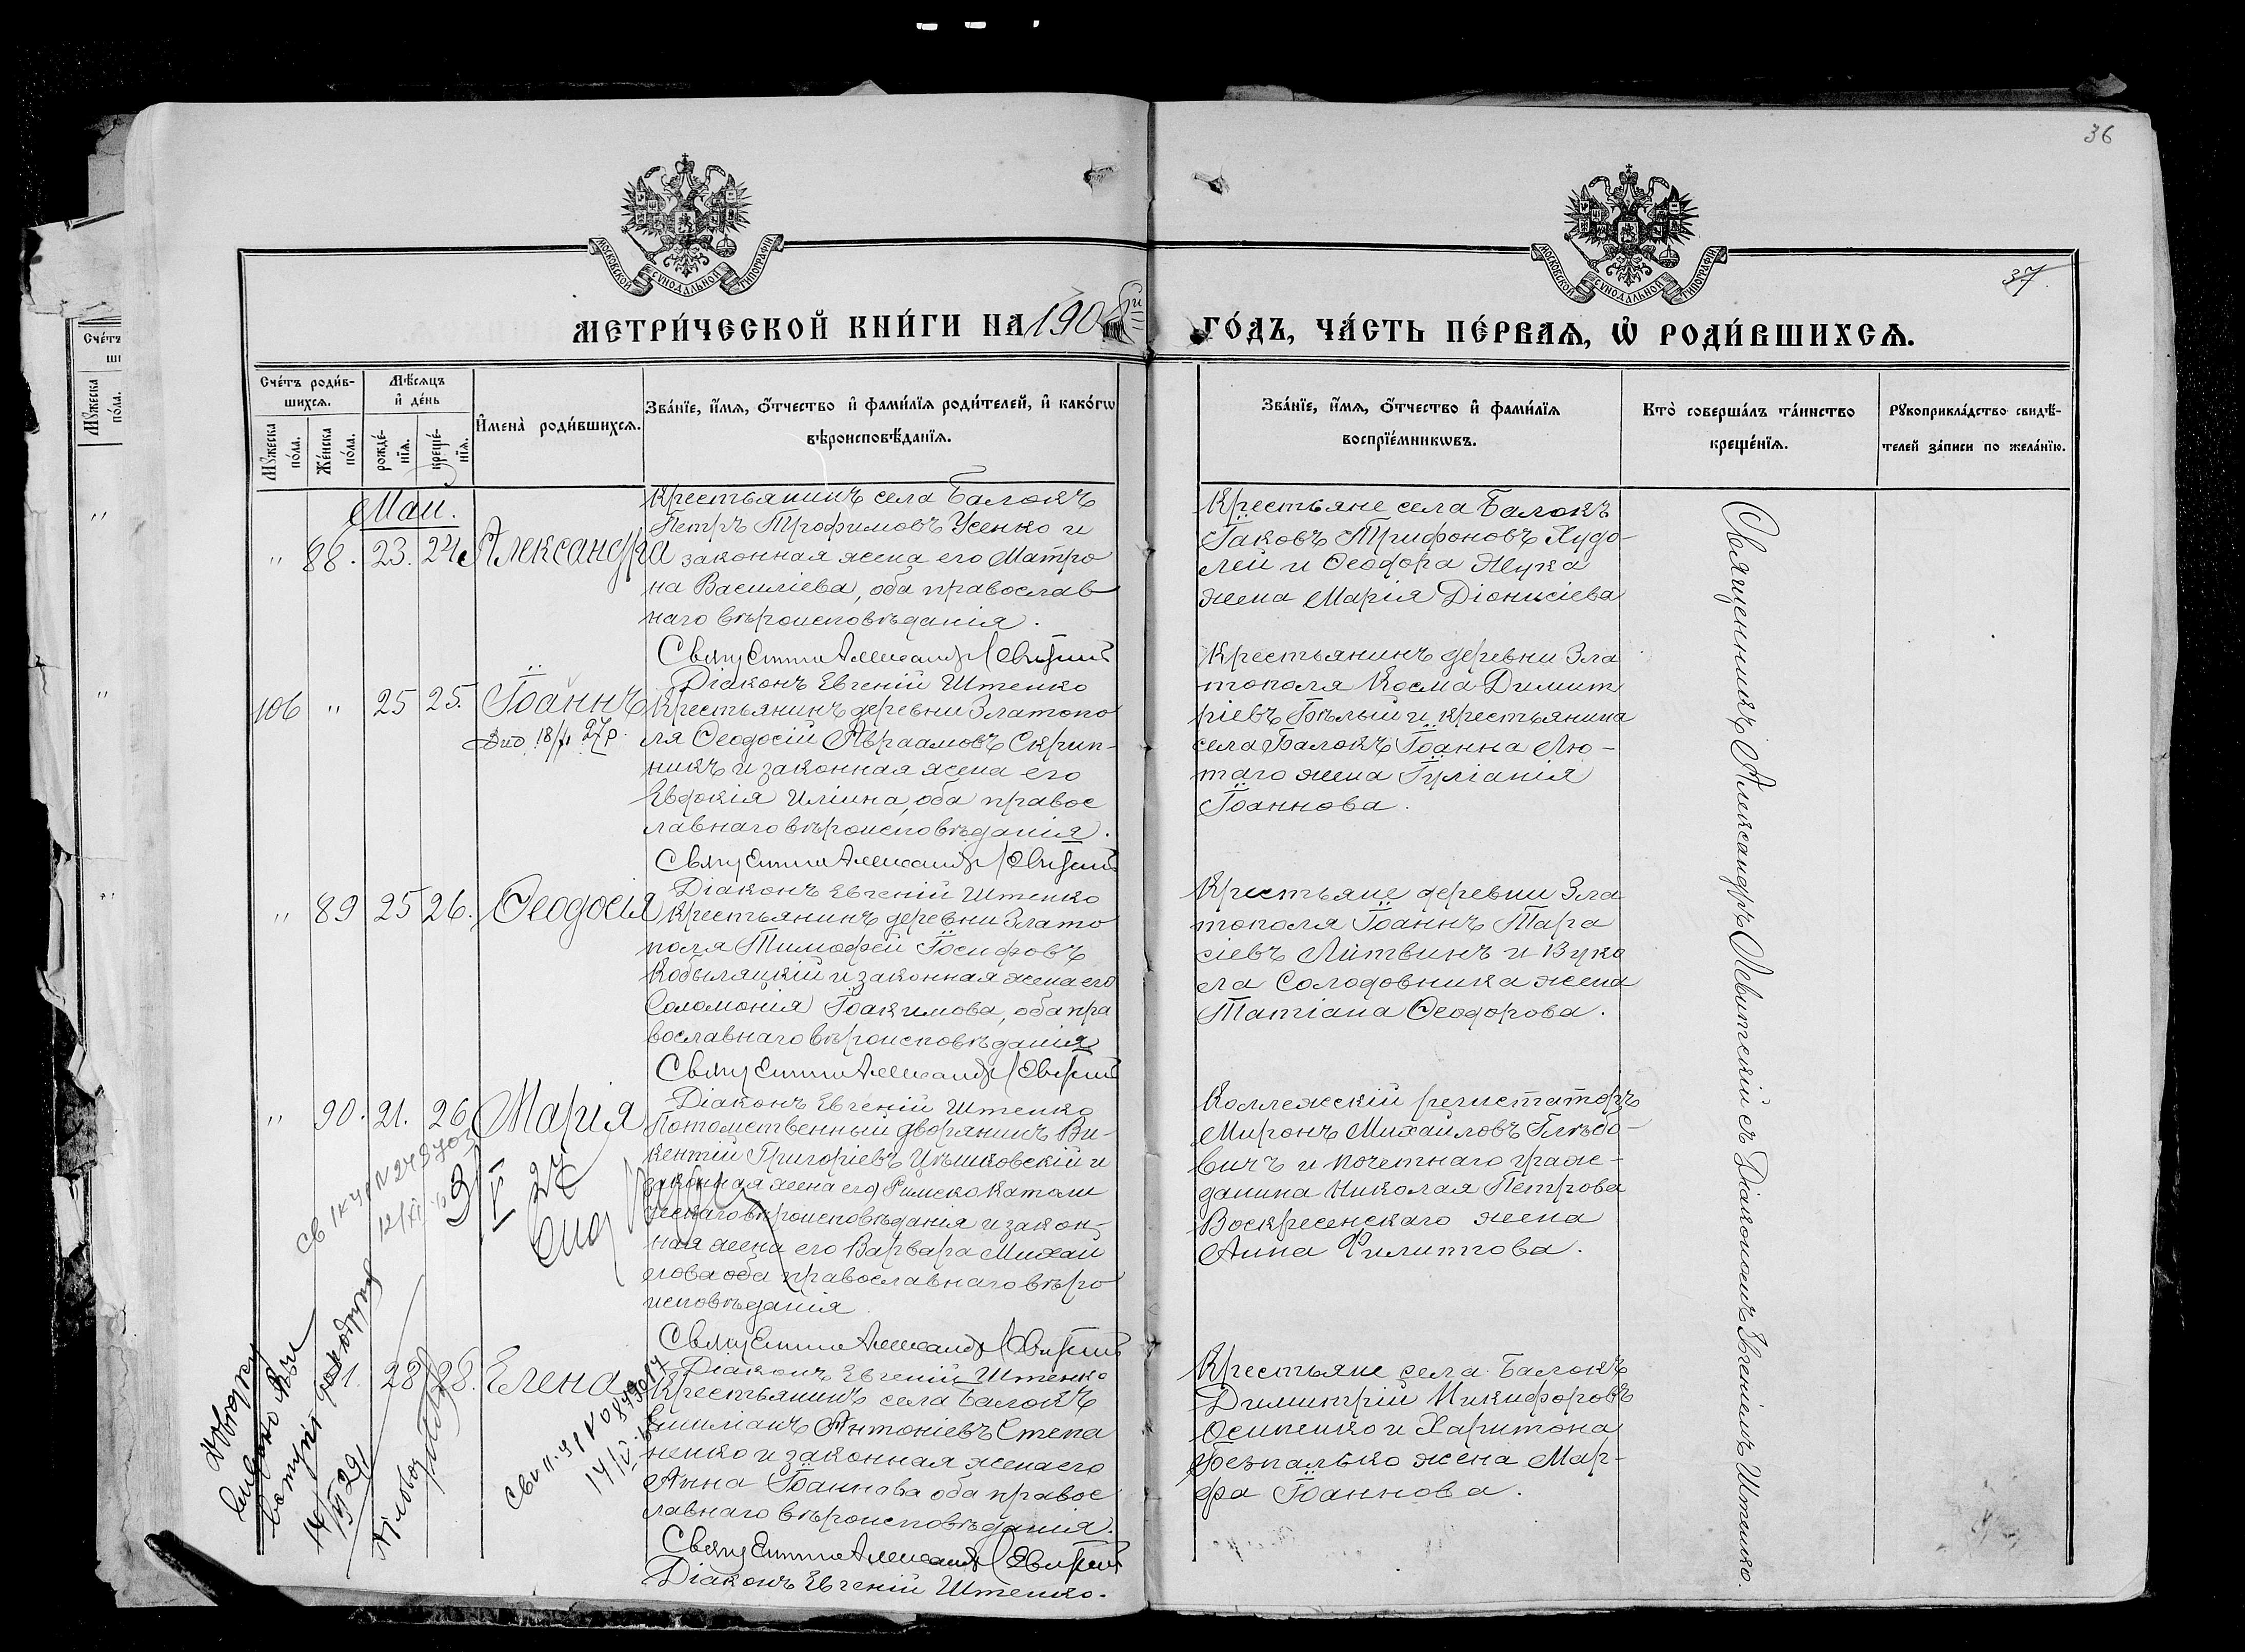 36
37
МОСКОВСКОЙ СУНОДАЛЬНОЙ ТИПОГРАФІИ
МОСКОВСКОЙ СУНОДАЛЬНОЙ ТИПОГРАФІИ
МЕТРИ́ЧЕСКОЙ КНИ́ГИ НА 190
ГО́ДЪ, ЧА́СТЬ ПЕ́РВАѦ, Ѡ҆ РОДИ́ВШИХСѦ.
Сче́тъ роди́в-
шихсѧ.
Мꙋ́жеска по́ла.
Же́нска по́ла.
Мѣ́сѧцъ
и҆ де́нь
рожде́-
нїѧ.
креще́-
нїѧ.
И҆мена̀ роди́вшихсѧ.
Зва́нїе, и҆́мѧ, ѻ҆́тчество и҆ фами́лїѧ роди́телей, и҆ како́гѡ
вѣроисповѣ́данїѧ.
Зва́нїе, и҆́мѧ, ѻ҆́тчество и҆ фами́лїѧ
воспрїе́мникѡвъ.
Кто̀ соверша́лъ та́инство
креще́нїѧ.
Рꙋкоприкла́дство свидѣ́-
телей за́писи по жела́нїю.
Май.
" 88. 23. 24 Александра
Крестьянинъ села Балокъ
Петръ Трофимовъ Усенко и
законная жена его Матро
на Василіева, оба православ
наго вѣроисповѣданія.
Діаконъ Евгеній Штенко
Крестьяне села Балокъ
Іаковъ Трифоновъ Худо-
лей и Ѳеодора Жука
жена Марія Діонисіева
106 " 25 25. Іоаннъ
Крестьянинъ деревни Златопо
ля Ѳеодосій Авраамовъ Скрип-
никъ и законная жена его
Евдокія Иліина, оба правос
лавнаго вѣроисповѣданія.
Діаконъ Евгеній Штенко
Крестьянинъ деревни Зла
тополя Косма Димит
ріевъ Бѣлый и крестьянина
села Балокъ Іоанна Лю-
таго жена Іуліанія
Іоаннова.
" 89 25 26. Ѳеодосія
Крестьянинъ деревни Злато
поля Тимофей Іосифовъ
Кобыляцкій и законная жена его
Соломонія Іоакимова, оба пра
вославнаго вѣроисповѣданія
Діаконъ Евгеній Штенко
Крестьяне деревни Зла
тополя Іоаннъ Тара
сіевъ Литвинъ и Вуко
ла Солодовника жена
Татіана Ѳеодорова.
" 90. 21. 26 Марія
Потомственный дворянинъ Ви-
кентій Григоріевъ Цѣшковскій и
законная жена его Римско Католи
ческаго вѣроисповѣданія и закон-
ная жена его Варвара Михаи
лова оба православнаго вѣро
исповѣданія
Діаконъ Евгеній Штенко
Коллежскій регистаторъ
Миронъ Михайловъ Глѣбо-
вичъ и почетнаго граж-
данина Николая Петрова
Воскресенскаго жена
Анна Филиппова.
28 28. Елена
Крестьянинъ села Балокъ
Емиліанъ Антоніевъ Степа
ненко и законная жена его
Анна Іоаннова оба правос
лавнаго вѣроисповѣданія.
Діаконъ Евгеній Штенко.
Крестьяне села Балокъ
Димитрій Никифоровъ
Осипенко и Харитона
Безпалько жена Мар-
фа Іоаннова.
Священникъ Александръ Левитскій съ Діакономъ Евгеніемъ Штенко.